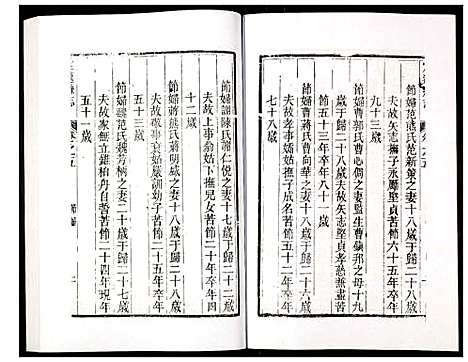 節婦范熊氏范新策之妻十八歲于歸二十八歲
夫故矢志撫子永勝堅貞苦節六十五年卒年
九十三歲
節婦曹郭氏曹心倜之妻監生曹邦之母十九
歲于歸二十八歲夫故矢志堅貞孝慈兼盡苦
節五十三年卒年八十一歲
節婦曹蔣氏曹向華之妻十八歲于歸二十六歲
夫故事翁姑撫子成名苦節五十二年卒年
七十八歲
節婦謝陳氏謝仁悅之妻十七歲于歸二十二歲
夫故上事翁姑下撫兒女苦節二十年卒年四
十二歲
節婦蔣熊氏蔣明威之妻十八歲于歸二十六歲
夫故敬事衰姑嚴訓幼子苦節二十五年卒年
五十一歲
節婦魏范氏魏芳柄之妻二十歲于歸二十七歲
夫故家無立錐柏舟自誓苦節二十四年現年
五十一歲
節婦